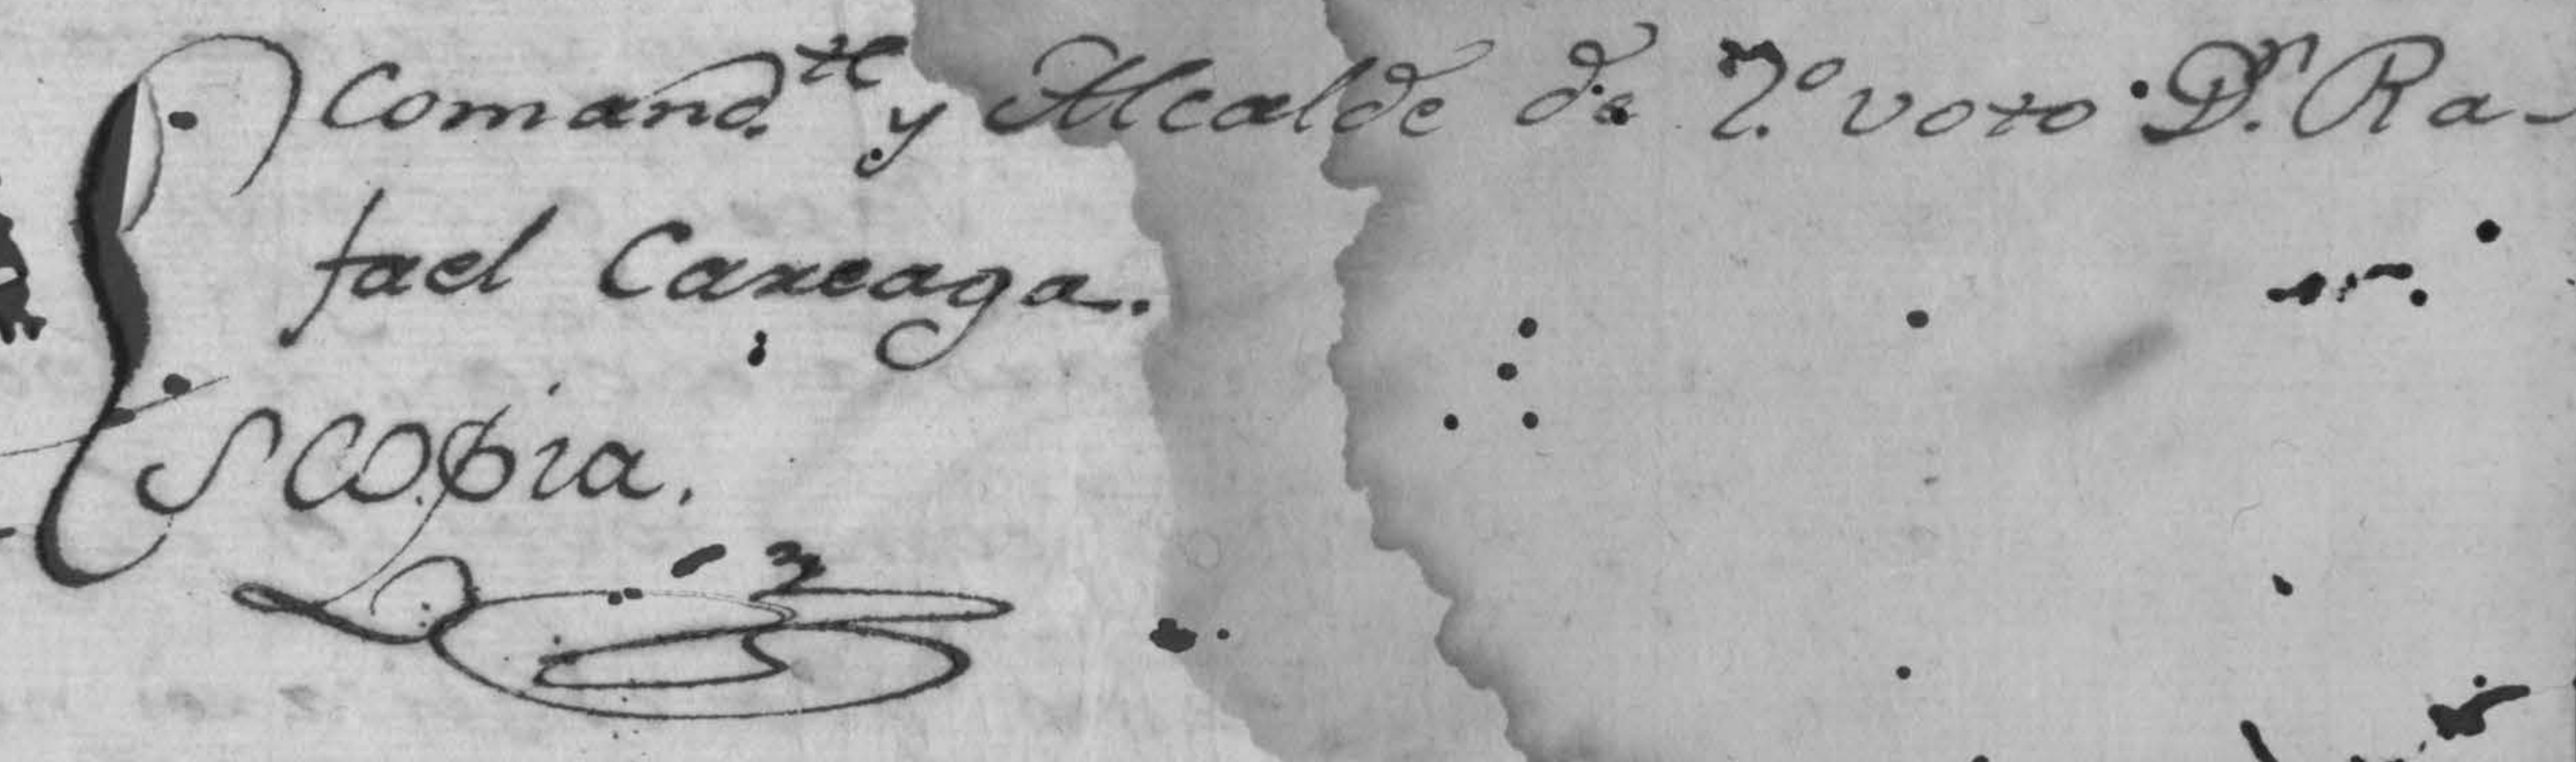 Comand.te y Alcalde de 2.º voto D.n Ra-
fael Careaga.
Es copia.